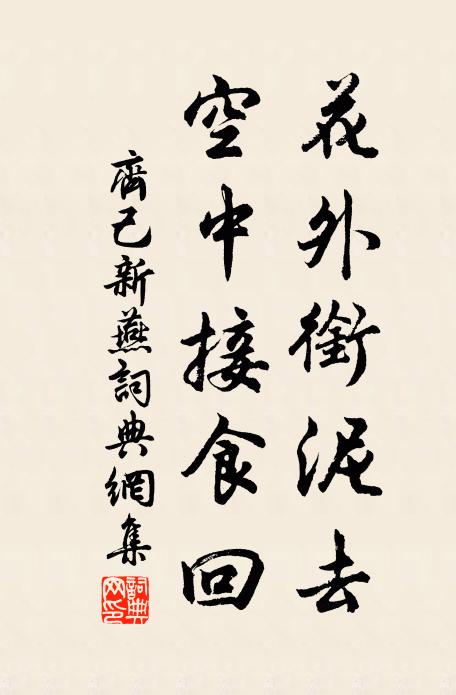 花外銜泥去
空中接食回
齊己新燕詞典網集
詞典網印